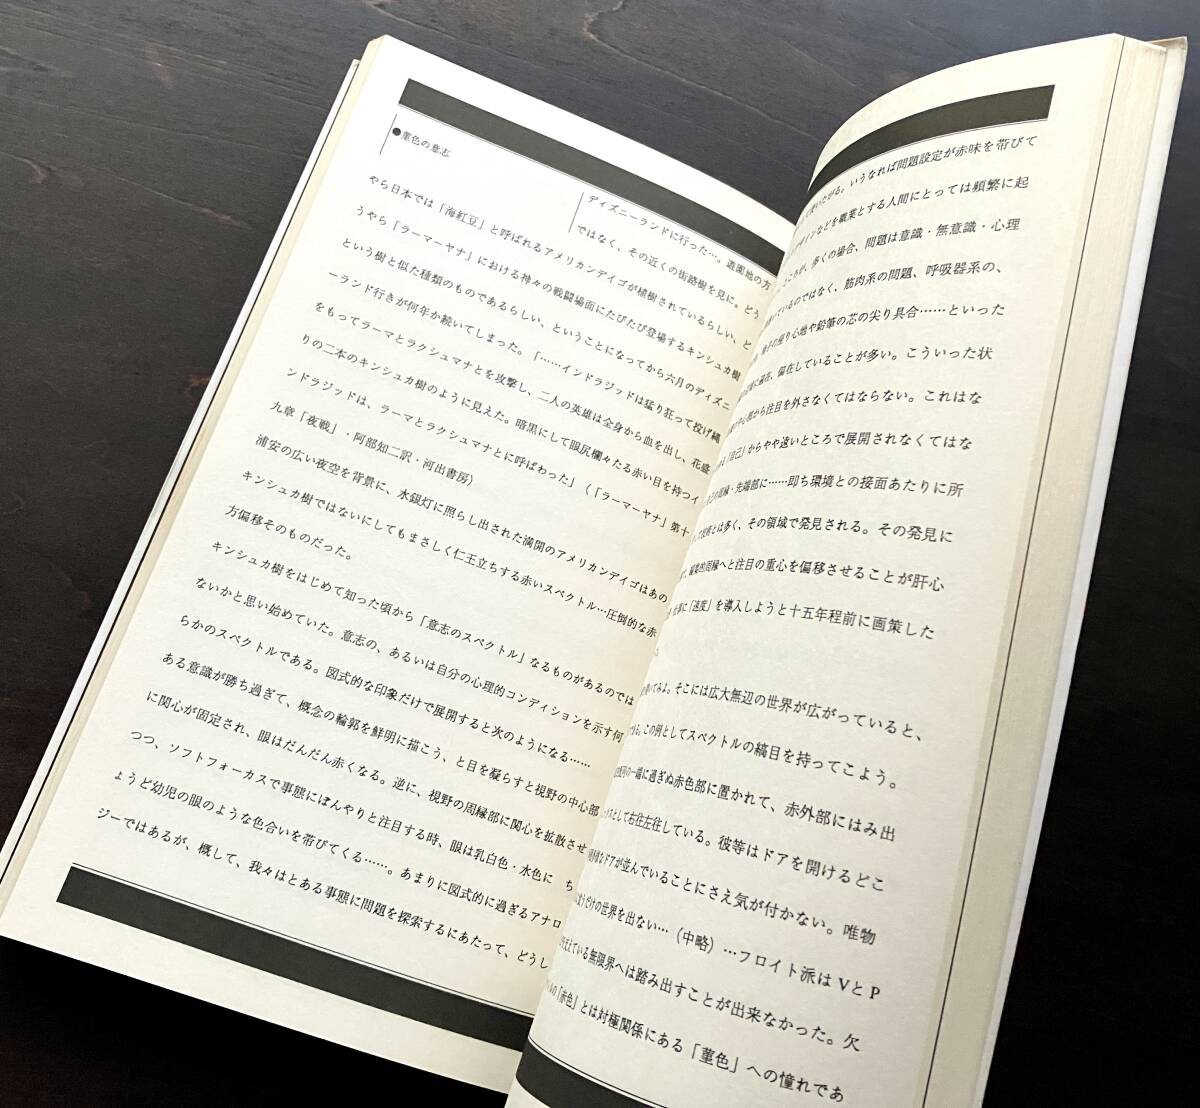 ●菫色の意志
ディズニーランドに行った…。遊園地の方
ではなく、その近くの街路樹を見に。どう
やら日本では「海紅豆」と呼ばれるアメリカンデイゴが植樹されているらしい、ど
うやら「ラーマーヤナ」における神々の戦闘場面にたびたび登場するキンシュカ樹
という樹と似た種類のものであるらしい、ということになってから六月のディズニ
ーランド行きが何年か続いてしまった。「……インドラジッドは猛り狂って投げ縄
をもってラーマとラクシュマナとを攻撃し、二人の英雄は全身から血を出し、花盛
りの二本のキンシュカ樹のように見えた。暗黒にして眼尻爛々たる赤い目を持つイ
ンドラジッドは、ラーマとラクシュマナとに呼ばわった」（「ラーマーヤナ」第十
九章「夜戦」・阿部知二訳・河出書房）
浦安の広い夜空を背景に、水銀灯に照らし出された満開のアメリカンデイゴはあの
キンシュカ樹ではないにしてもまさしく仁王立ちする赤いスペクトル…圧倒的な赤
方偏移そのものだった。
キンシュカ樹をはじめて知った頃から「意志のスペクトル」なるものがあるのでは
ないかと思い始めていた。意志の、あるいは自分の心理的コンディションを示す何
らかのスペクトルである。図式的な印象だけで展開すると次のようになる……
ある意識が勝ち過ぎて、概念の輪郭を鮮明に描こう、と目を凝らすと視野の中心部
に関心が固定され、眼はだんだん赤くなる。逆に、視野の周縁部に関心を拡散させ
つつ、ソフトフォーカスで事態にぼんやりと注目する時、眼は乳白色・水色に ち
ょうど幼児の眼のような色合いを帯びてくる……。あまりに図式的に過ぎるアナロ
ジーではあるが、概して、我々はとある事態に問題を探索するにあたって、どうし
て使いたがる。いうなれば問題設定が赤味を帯びて
デザインなどを職業とする人間にとっては頻繁に起
ところが、多くの場合、問題は意識・無意識・心理
ているのではなく、筋肉系の問題、呼吸器系の、
椅子の座り心地や鉛筆の芯の尖り具合……といった
に遍在、偏在していることが多い。こういった状
の中心部から注目を外さなくてはならない。これはな
「自己」からやや遠いところで展開されなくてはな
の周縁・先端部に……即ち環境との接面あたりに所
技術とは多く、その領域で発見される。その発見に
周縁へと注目の重心を偏移させることが肝心
に「速度」を導入しようと十五年程前に画策した
いてみよ。そこには広大無辺の世界が広がっていると、
ある。この例としてスペクトルの縞目を持ってこよう。
の一端に過ぎぬ赤色部に置かれて、赤外部にはみ出
として右往左往している。彼等はドアを開けるどこ
なドアが並んでいることにさえ気が付かない。唯物
だけの世界を出ない…（中略）…フロイト派はVとP
ている無限界へは踏み出すことが出来なかった。欠
の「赤色」とは対極関係にある「菫色」への憧れであ